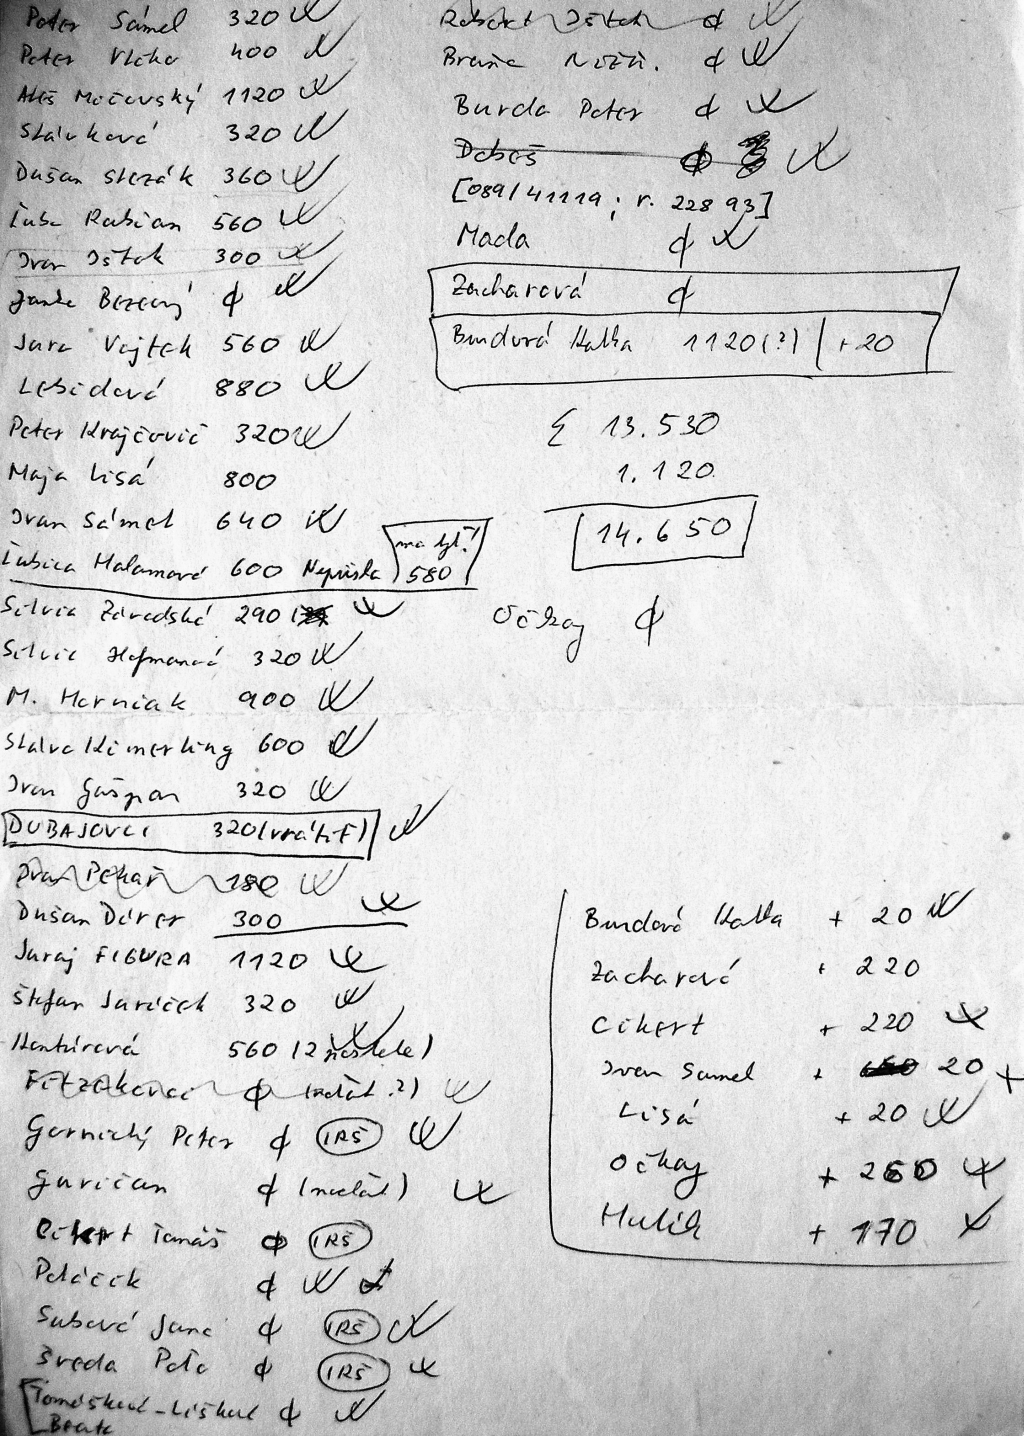 Peter Sámel 320
Peter Vlcko 400
Aleš Močovský 1120
Slávková 320
Dušan Slezák 360
Ľubo Rabian 560
Ivan Ištok 300
Janko Bezecný ø
Jura Vojtek 560
Lebidová 880
Peter Krajčovič 320
Maja Lisá 800
Ivan Sámel 640
Ľubica Malamová 600 Neprišla má byť! 580
Silvia Závodská 290
Silvia Hofmanová 320
M. Horniak 900
Slávo Kimerling 600
Ivan Gašpan 320
DUBAJOVCI 320 (vrátiť)
Ivan Pekař 180
Dušan Dúrer 300
Juraj FIGURA 1120
Štefan Juríček 320
Kantúrová 560 (2
ø
Gornický Peter ø IRŠ
Guričan ø
Cikert Tomáš ø IRŠ
Poláček ø
Subová Jana ø IRŠ
Sreda Peťo ø IRŠ
ø
Robert Ištok ø
Braňo ø
Burda Peter ø
Dobeš ø
[089/41119; r. 228 93]
Mada ø
Zacharová ø
Bundová Katka 1120 (?) +20
Σ 13.530
1.120
14.650
Očkaj ø
Bundová Katka + 20
Zacharová + 220
Cikert + 220
Ivan Samel + 20
Lisá + 20
Očkaj + 260
Hulík + 170